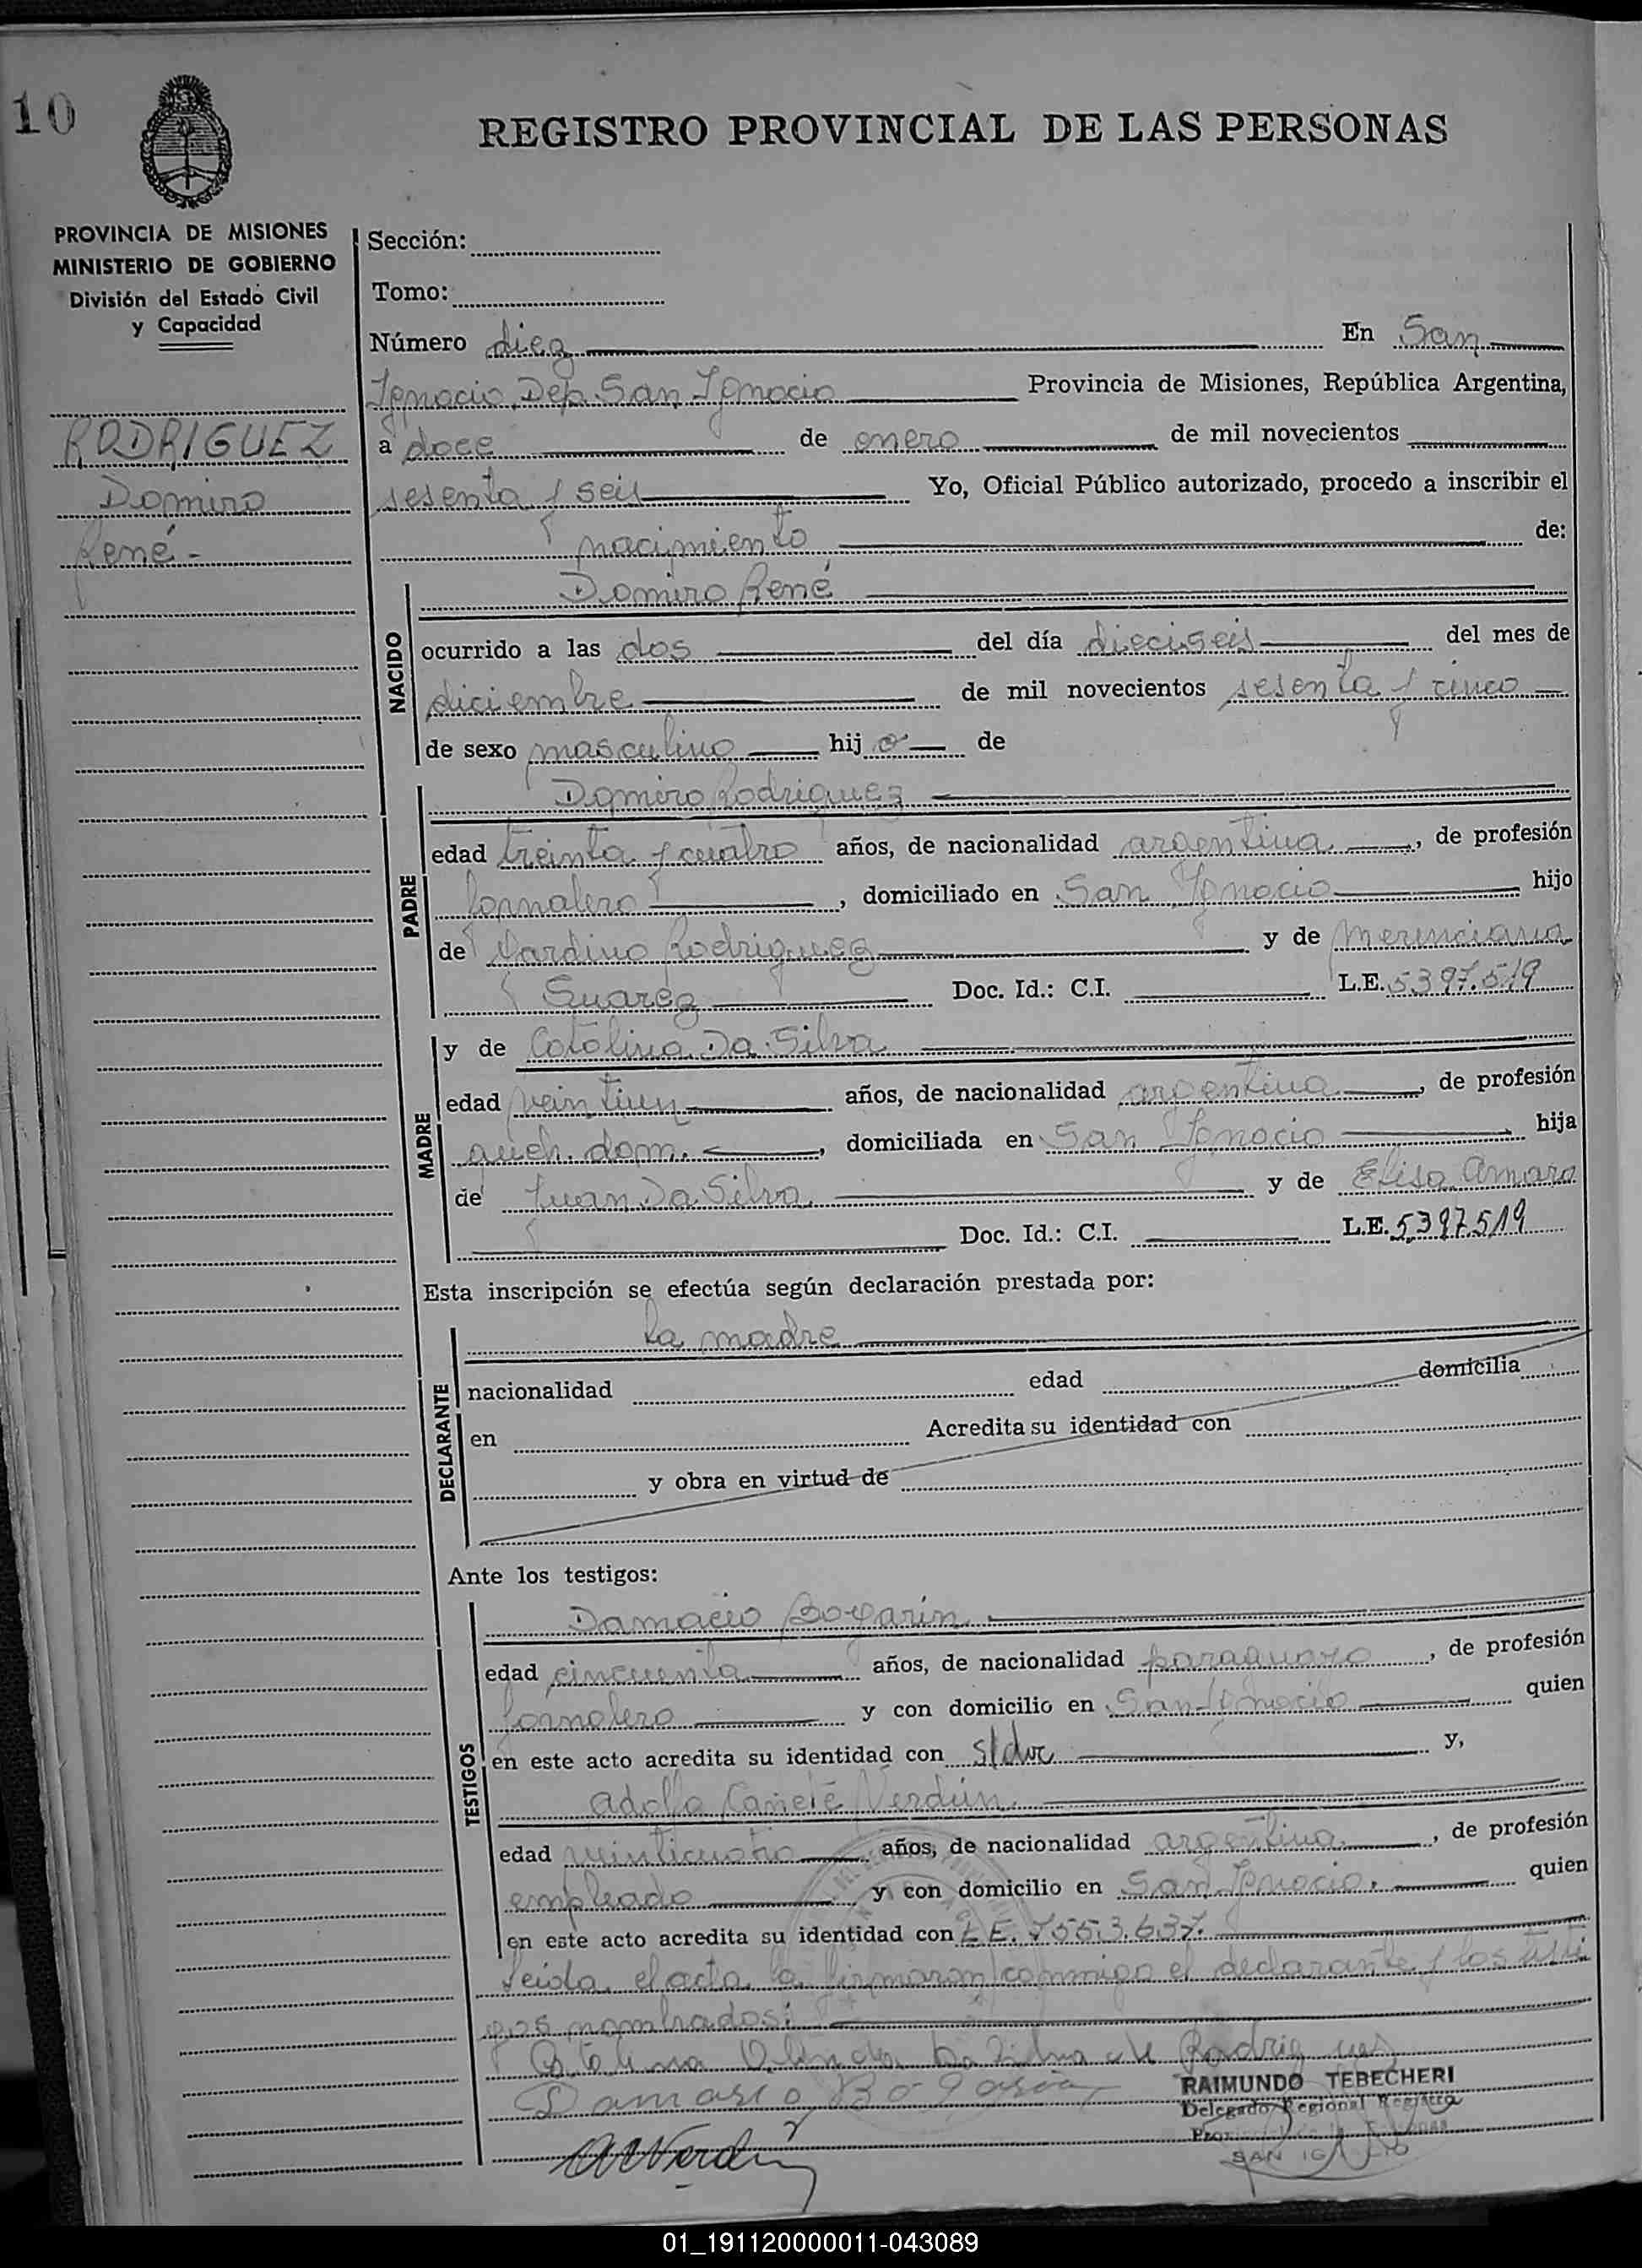 10
REGISTRO PROVINCIAL DE LAS PERSONAS
PROVINCIA DE MISIONES
MINISTERIO DE GOBIERNO
División del Estado Civil
y Capacidad
RODRIGUEZ
Domiro
René -
Sección:
Tomo:
Número diez En San
Ignacio Dep. San Ignacio Provincia de Misiones, República Argentina,
a doce de enero de mil novecientos
sesenta y seis Yo, Oficial Público autorizado, procedo a inscribir el
nacimiento de:
NACIDO
Domiro René
ocurrido a las dos del día dieciseis del mes de
diciembre de mil novecientos sesenta y cinco
de sexo masculino hijo de
PADRE
Domiro Rodriguez
edad treinta y cuatro años, de nacionalidad argentina, de profesión
Jornalero, domiciliado en San Ignacio hijo
de Rodriguez y de Merenciana
Suarez Doc. Id.: C.I. L.E. 5397.519
MADRE
y de Catalina Da Silva
edad veintiun años, de nacionalidad argentina, de profesión
queh. dom., domiciliada en San Ignacio hija
de Juan Da Silva y de Elisa Amaro
Doc. Id.: C.I. L.E. 5.397.519
Esta inscripción se efectúa según declaración prestada por:
DECLARANTE
La madre
nacionalidad edad domicilia
en Acredita su identidad con
y obra en virtud de
Ante los testigos:
TESTIGOS
Damacio Bogarin
edad cincuenta años, de nacionalidad paraguayo, de profesión
Jornalero y con domicilio en San Ignacio quien
en este acto acredita su identidad con s/doc y,
Adolfo Cañete Verdún
edad veinticuatro años, de nacionalidad argentina, de profesión
empleado y con domicilio en San Ignacio. quien
en este acto acredita su identidad con L.E. 7553.637.
Leida el acta la firmaron conmigo el declarante y los testi
gos nombrados:
Catalina Olinda Da Silva de Rodriguez
Damasio Bogarin
RAIMUNDO TEBECHERI
Delegado Regional Registro
AVerdún
SAN IGNACIO
01_191120000011-043089